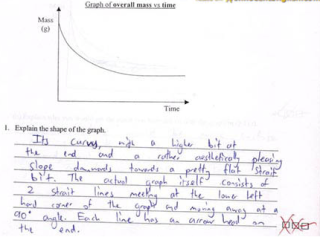 Graph of overall mass vs time
Mass
(g)
Time
1. Explain the shape of the graph.
Its curvs, with a higher bit at
the end and a rather aesthetically pleasing
slope downwards towards a pretty flat strait
bit. The actual graph itself consists of
2 strait lines meeting at the lower left
hand corner of the graph and moving away at a
90° angle. Each line has an arrow head on
the end.